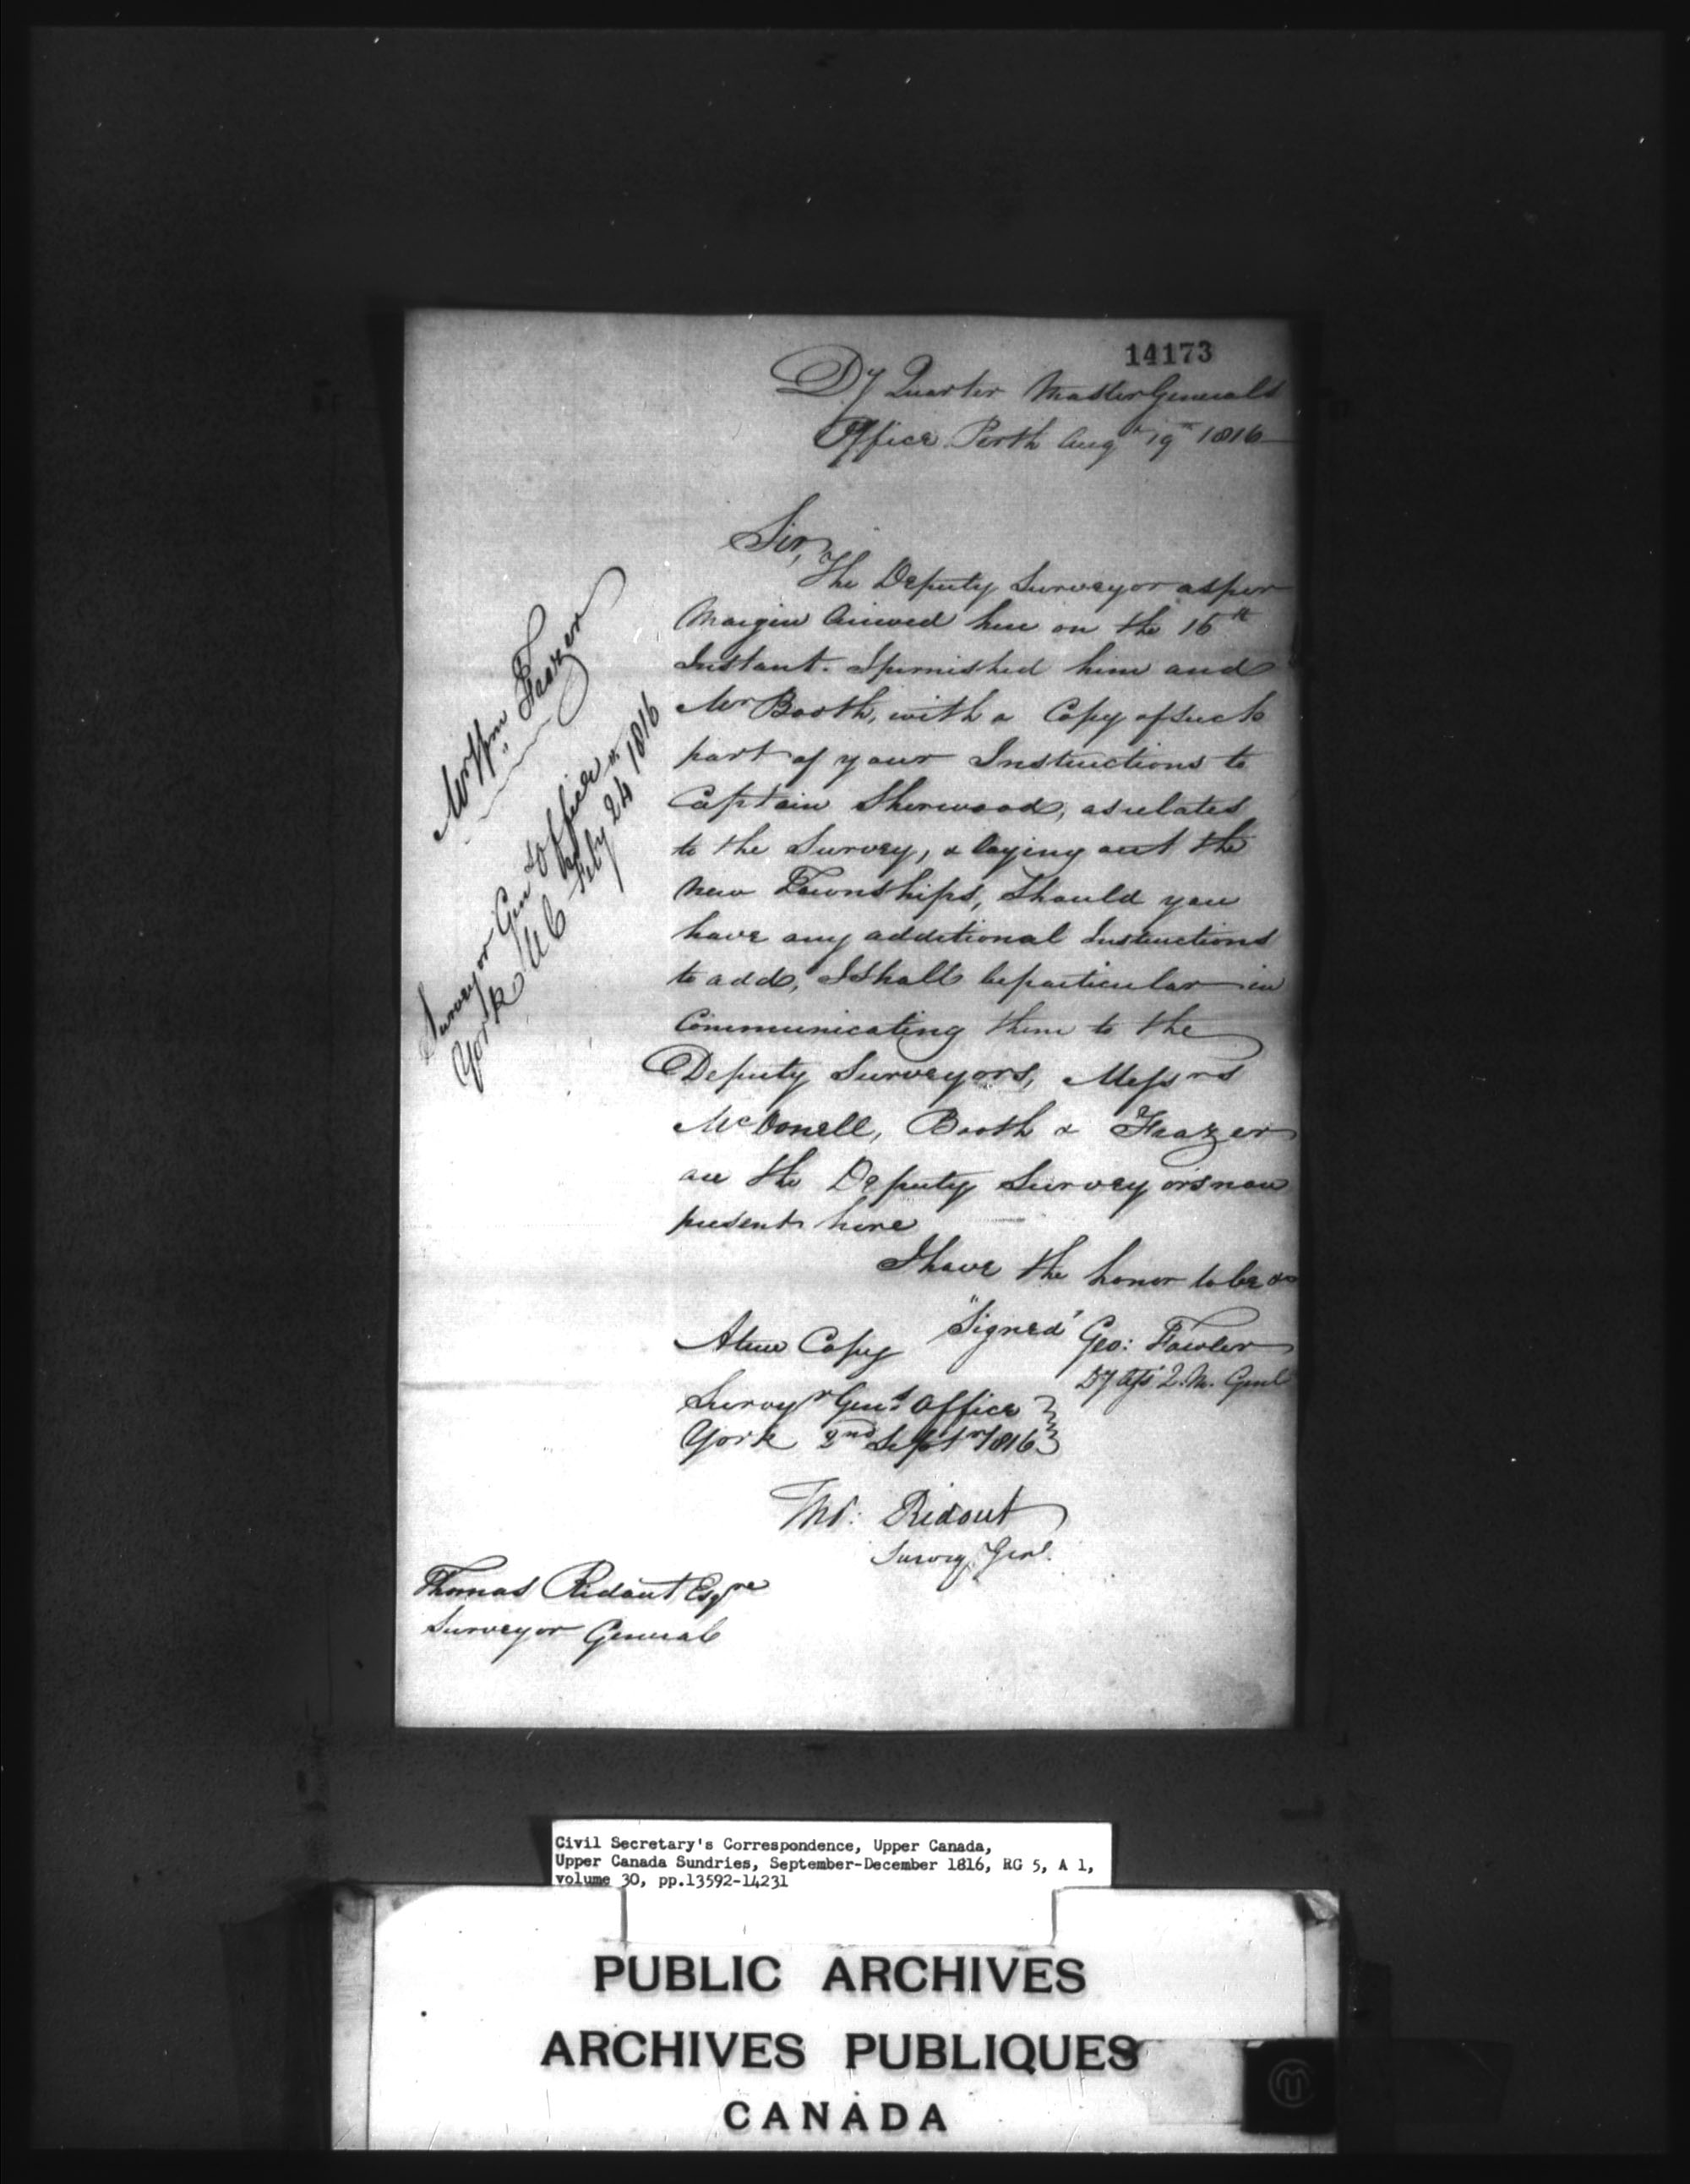 14173
Dy Quarter Master Generals
Office Perth Augt 19th 1816
Sir,
The Deputy Surveyor as per
Margin Arrived here on the 16th
Instant. I furnished him and
Mr Booth, with a Copy of such
part of your Instructions to
Captain Sherwood, as relates
to the Survey, & laying out the
new Townships, Should you
have any additional Instructions
to add, I Shall be particular in
Communicating them to the
Deputy Surveyors, Messrs
McDonell, Booth & Frazer
are the Deputy Surveyors now
present here
I have the honor to be &c
"Signed" Geo: Fowler
Dy Asst Q. M. Genl
A true Copy
Survyr Genls Office
York 2nd Septr 1816
Mr Wm Frazer
Surveyor Genls Office
York U C
Feby 24 1816
Thos: Ridout
Survey. Genl.
Thomas Ridout Esqre
Surveyor General
Civil Secretary's Correspondence, Upper Canada,
Upper Canada Sundries, September-December 1816, RG 5, A 1,
volume 30, pp.13592-14231
PUBLIC ARCHIVES
ARCHIVES PUBLIQUES
CANADA